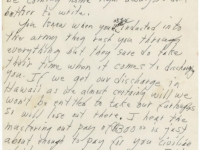 bother to write.
You know when your inducted into
the army they rush you through
everything but they sure do take
their time when it comes to discharging
you. If we get our discharge in
Hawaii as we almost certainly will we
won't be entitled to take our furloughs
so will lose out there. I hear the
mustering out pay of $300 is just
about enough to pay for you civilian